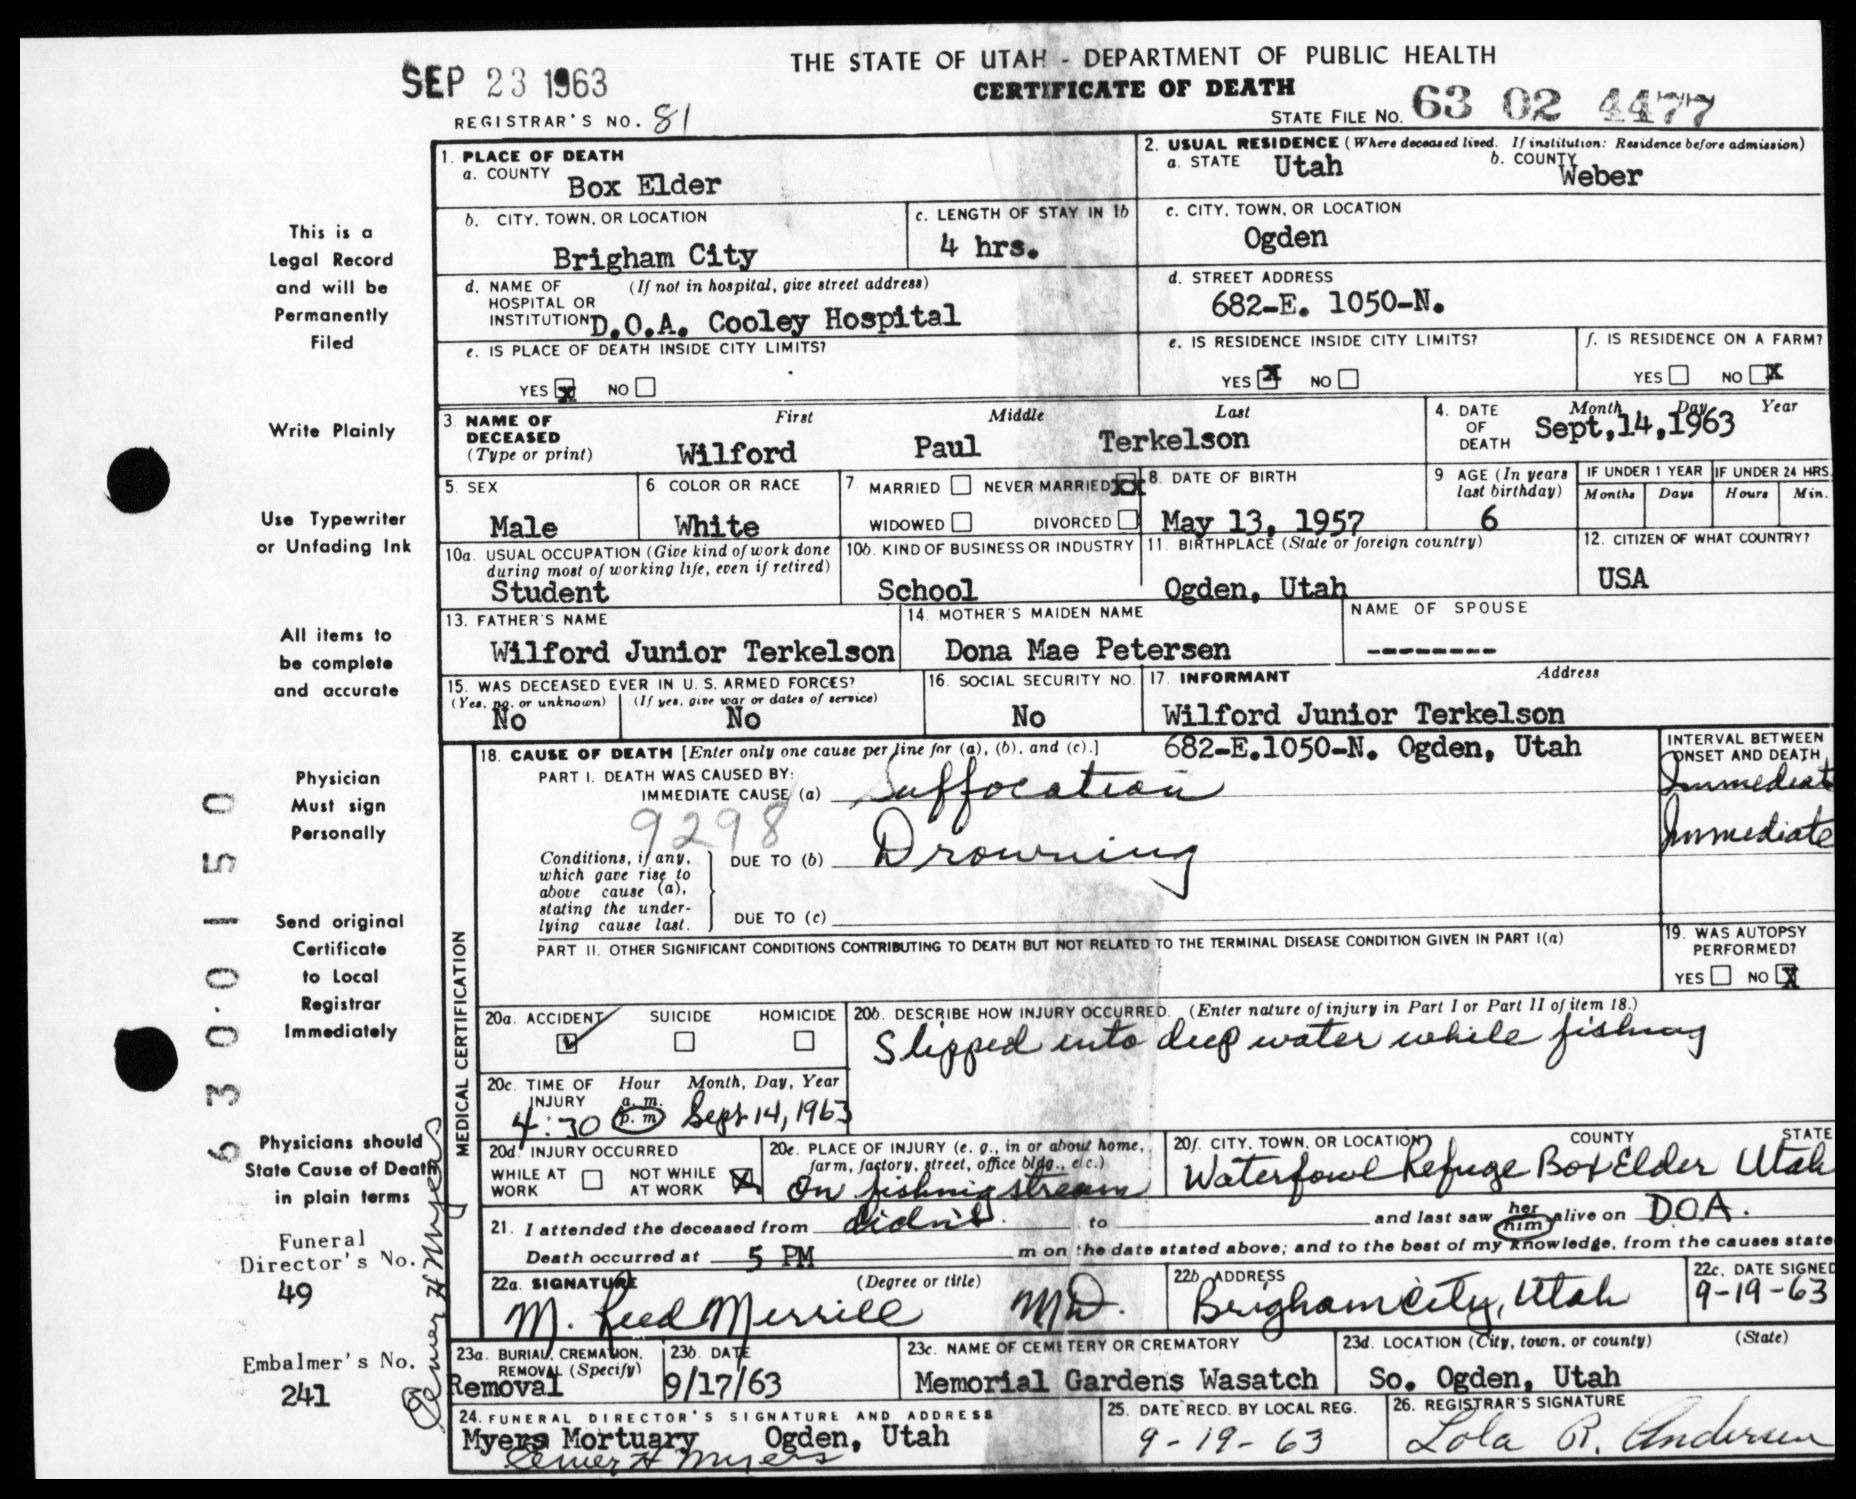 THE STATE OF UTAH - DEPARTMENT OF PUBLIC HEALTH
SEP 23 1963
CERTIFICATE OF DEATH
REGISTRAR'S NO. 81
STATE FILE NO. 63 02 4477
1. PLACE OF DEATH
a. COUNTY Box Elder
2. USUAL RESIDENCE (Where deceased lived. If institution: Residence before admission)
a. STATE Utah b. COUNTY Weber
b. CITY, TOWN, OR LOCATION Brigham City
c. LENGTH OF STAY IN 1b 4 hrs.
c. CITY, TOWN, OR LOCATION
Ogden
d. NAME OF HOSPITAL OR INSTITUTION (If not in hospital, give street address)
D.O.A. Cooley Hospital
d. STREET ADDRESS
682-E. 1050-N.
e. IS PLACE OF DEATH INSIDE CITY LIMITS?
YES X NO
e. IS RESIDENCE INSIDE CITY LIMITS?
YES X NO
f. IS RESIDENCE ON A FARM?
YES NO X
3. NAME OF DECEASED (Type or print)
First Middle Last
Wilford Paul Terkelson
4. DATE OF DEATH Month Day Year
Sept,14,1963
5. SEX
Male
6. COLOR OR RACE
White
7. MARRIED NEVER MARRIED XX
WIDOWED DIVORCED
8. DATE OF BIRTH
May 13, 1957
9 AGE (In years last birthday)
6
IF UNDER 1 YEAR
Months Days
IF UNDER 24 HRS.
Hours Min.
10a. USUAL OCCUPATION (Give kind of work done during most of working life, even if retired)
Student
10b. KIND OF BUSINESS OR INDUSTRY
School
11. BIRTHPLACE (State or foreign country)
Ogden, Utah
12. CITIZEN OF WHAT COUNTRY?
USA
13. FATHER'S NAME
Wilford Junior Terkelson
14. MOTHER'S MAIDEN NAME
Dona Mae Petersen
NAME OF SPOUSE
--------
15. WAS DECEASED EVER IN U. S. ARMED FORCES?
(Yes, no, or unknown) (If yes, give war or dates of service)
No No
16. SOCIAL SECURITY NO.
No
17. INFORMANT Address
Wilford Junior Terkelson
682-E.1050-N. Ogden, Utah
18. CAUSE OF DEATH [Enter only one cause per line for (a), (b), and (c).]
PART I. DEATH WAS CAUSED BY:
IMMEDIATE CAUSE (a) Suffocation
9298
Conditions, if any, which gave rise to above cause (a), stating the underlying cause last.
DUE TO (b) Drowning
DUE TO (c)
INTERVAL BETWEEN ONSET AND DEATH
Immediate
Immediate
PART II. OTHER SIGNIFICANT CONDITIONS CONTRIBUTING TO DEATH BUT NOT RELATED TO THE TERMINAL DISEASE CONDITION GIVEN IN PART I(a)
19. WAS AUTOPSY PERFORMED?
YES NO X
20a. ACCIDENT SUICIDE HOMICIDE
20b. DESCRIBE HOW INJURY OCCURRED. (Enter nature of injury in Part I or Part II of item 18.)
Slipped into deep water while fishing
20c. TIME OF INJURY Hour a. m. p. m Month, Day, Year
4:30 Sept 14, 1963
20d. INJURY OCCURRED
WHILE AT WORK NOT WHILE AT WORK X
20e. PLACE OF INJURY (e. g., in or about home, farm, factory, street, office bldg., etc.)
On fishing stream
20f. CITY, TOWN, OR LOCATION COUNTY STATE
Waterfowl Refuge Box Elder Utah
21. I attended the deceased from didn't to and last saw her him alive on D.O.A.
Death occurred at 5 PM m on the date stated above; and to the best of my knowledge, from the causes state
22a. SIGNATURE (Degree or title)
M. Reed Merrill MD.
22b. ADDRESS
Brigham City, Utah
22c. DATE SIGNED
9-19-63
23a. BURIAL, CREMATION, REMOVAL (Specify)
Removal
23b. DATE
9/17/63
23c. NAME OF CEMETERY OR CREMATORY
Memorial Gardens Wasatch
23d. LOCATION (City, town, or county) (State)
So. Ogden, Utah
24. FUNERAL DIRECTOR'S SIGNATURE AND ADDRESS
Myers Mortuary Ogden, Utah
25. DATE RECD. BY LOCAL REG.
9-19-63
26. REGISTRAR'S SIGNATURE
Lola R. Andersen
MEDICAL CERTIFICATION
This is a
Legal Record
and will be
Permanently
Filed
Write Plainly
Use Typewriter
or Unfading Ink
All items to
be complete
and accurate
Physician
Must sign
Personally
Send original
Certificate
to Local
Registrar
Immediately
Physicians should
State Cause of Death
in plain terms
Funeral
Director's No.
49
Embalmer's No.
241
630.0150